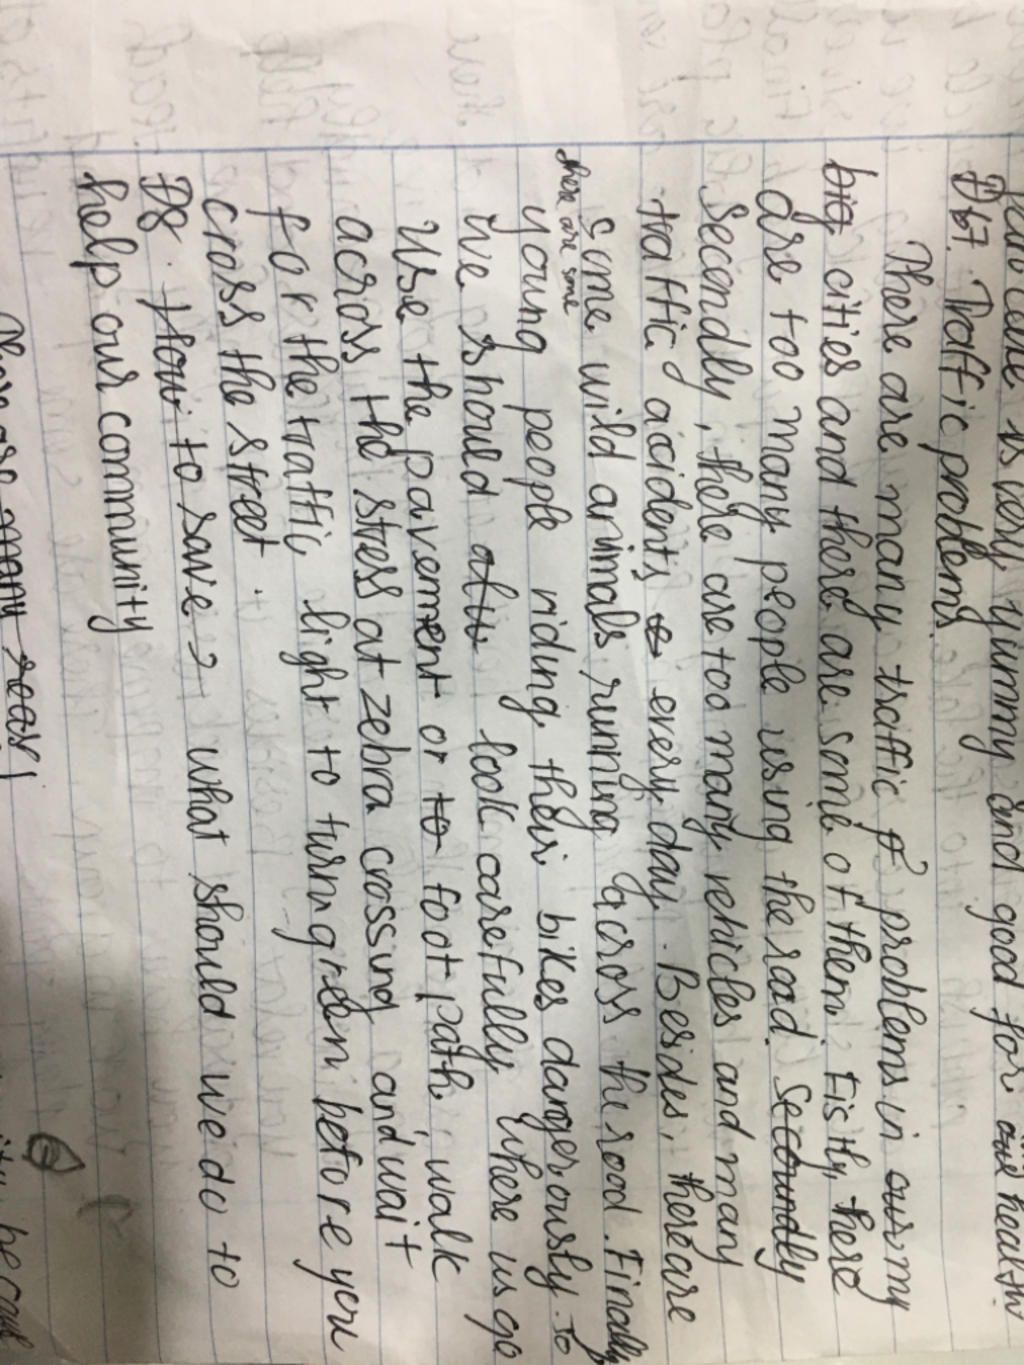 is very yummy and good for and health
Đb7. Traffic problems.
There are many traffic p problems in our my
big cities and there are some of them. Fistly, there
are too many people using the road. Secoundly
Secendly, there are too many vehicles and many
traffic accidents every day. Besides, there are
some wild animals running across the road. Finally
there are some
young people riding their bikes dangerously. To
we should look carefully where us go
Use the pavement or to foot path walk
across the stress at zebra crossing and wait
for the traffic light to turn green before you
cross the street.
Đ8. How to save → what should we do to
help our community
There are many reas